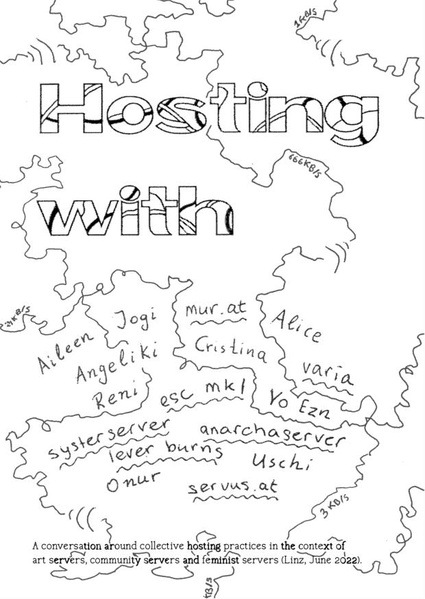 1KB/s
Hosting
666KB/s
with
21KB/s
Aileen Jogi mur.at Alice
Angeliki Cristina varia
Reni esc mkl Yo Ezn
systerserver anarchaserver
lever burns Uschi
Onur servus.at
3 KB/s
A conversation around collective hosting practices in the context of
art servers, community servers and feminist servers (Linz, June 2022).